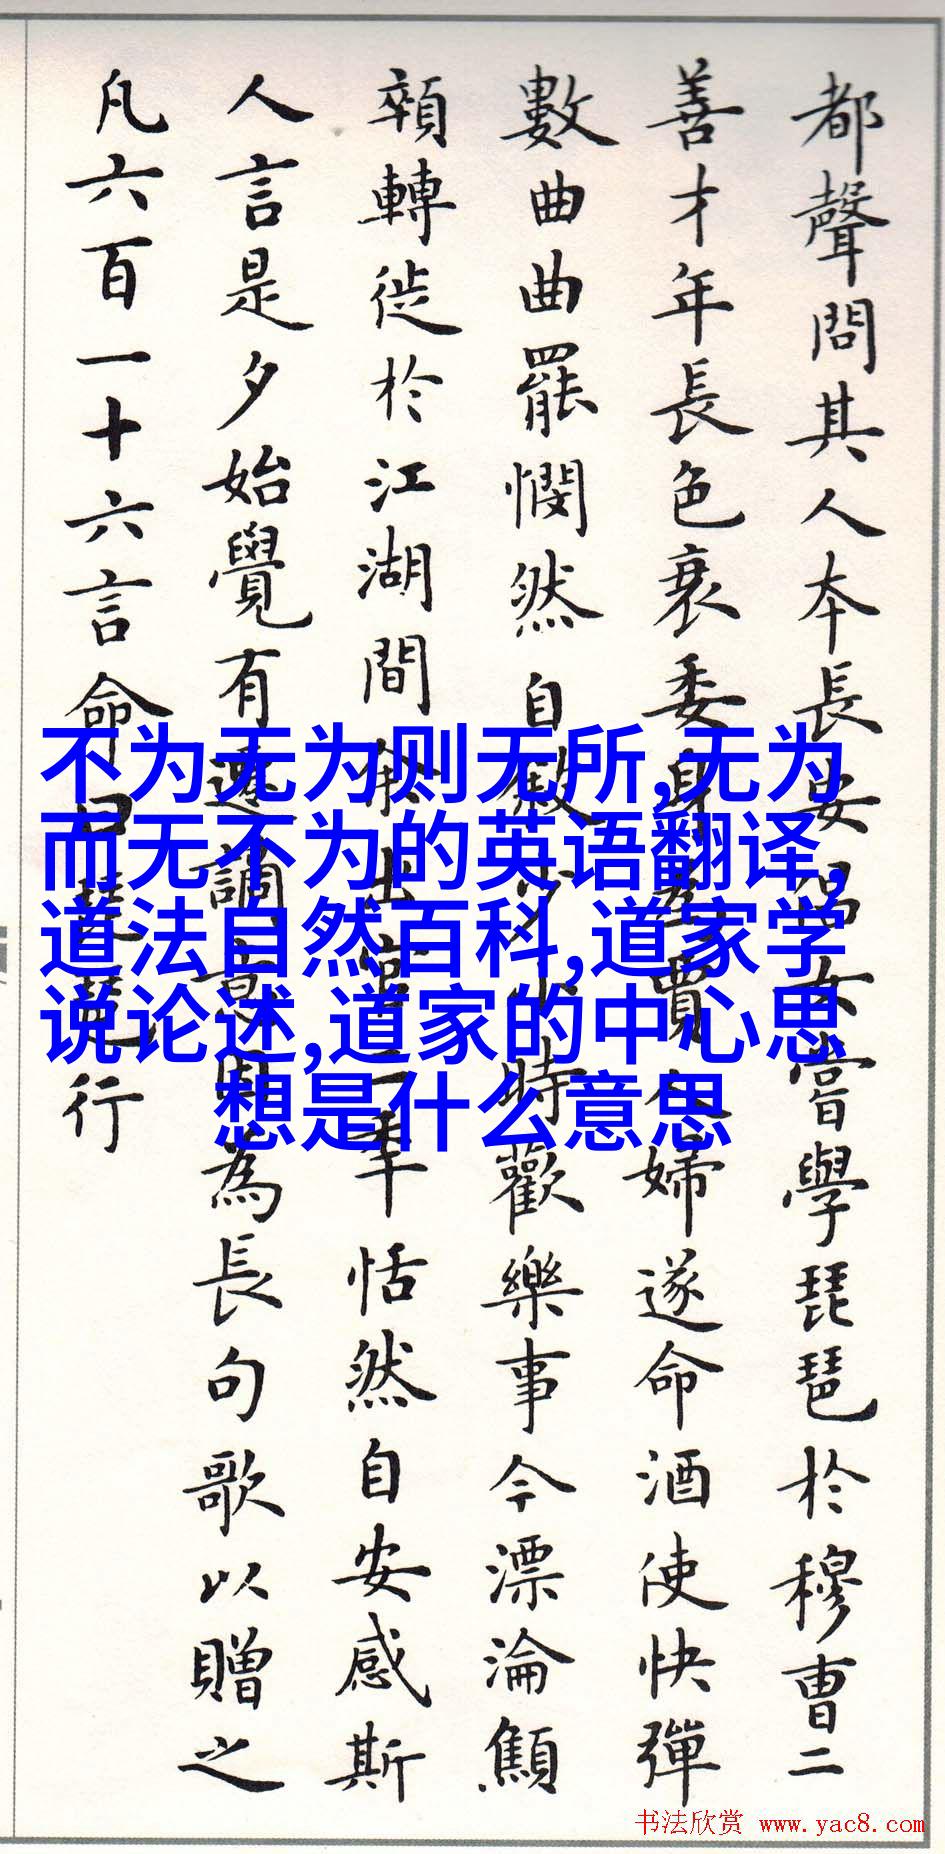 都聲問其人本長安倡女嘗學琵琶於穆曹二
善才年長色衰委身為賈人婦遂命酒使快彈
數曲曲罷憫然自敘少小時歡樂事今漂淪顦
顇轉徙於江湖間余出官二年恬然自安感斯
人言是夕始覺有遷謫意因為長句歌以贈之
凡六百一十六言命曰琵琶行
不为无为则无所,无为
而无不为的英语翻译,
道法自然百科,道家学
说论述,道家的中心思
想是什么意思
书法欣赏 www.yac8.com